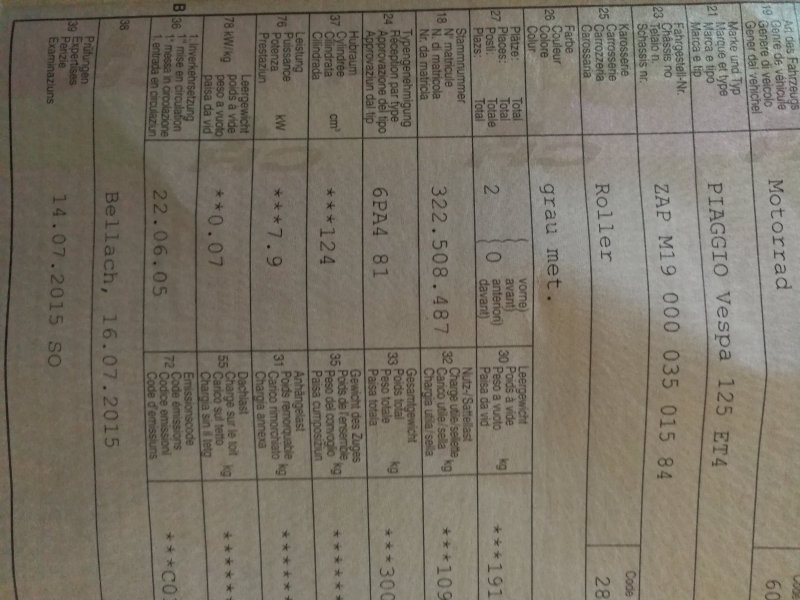 Art des Fahrzeugs
19 Genre de véhicule
Genere di veicolo
Gener da vehichel
Motorrad
Code
60
Marke und Typ
21 Marque et type
Marca e tipo
Marca e tip
PIAGGIO Vespa 125 ET4
Fahrgestell-Nr.
23 Châssis no
Telaio n.
Schassis nr.
ZAP M19 000 035 015 84
Karosserie
25 Carrosserie
Carrozzeria
Carossaria
Roller
Code
28
Farbe
26 Couleur
Colore
Colur
grau met.
Plätze: Total
27 Places: Total
Posti: Totale
Plazs: Total
2
0
vorne)
avant)
anteriori)
davant)
Leergewicht
30 Poids à vide
Peso a vuoto kg
Paisa da vid
***191
Stammnummer
18 N° matricule
N. di matricola
Nr. da matricla
322.508.487
Nutz-/Sattellast
32 Charge utile/sellette
Carico utile/sella kg
Chargia utila/sella
***109
Typengenehmigung
24 Réception par type
Approvazione del tipo
Approvaziun dal tip
6PA4 81
Gesamtgewicht
33 Poids total
Peso totale kg
Paisa totala
***300
Hubraum
37 Cylindrée
Cilindrata cm³
Cilindrada
***124
Gewicht des Zuges
35 Poids de l'ensemble
Peso del convoglio kg
Paisa cumposiziun
******
Leistung
76 Puissance
Potenza kW
Prestaziun
***7.9
Anhängelast
31 Poids remorquable
Carico rimorchiato kg
Chargia annexa
******
Leergewicht
78 kW/kg poids à vide
peso a vuoto
paisa da vid
**0.07
Dachlast
55 Charge sur le toit
Carico sul tetto kg
Chargia sin il tetg
******
B
1. Inverkehrsetzung
36 1re mise en circulation
1a messa in circolazione
1. entrada en circulaziun
22.06.05
Emissionscode
72 Code émissions
Codice emissioni
Code d'emissiuns
***C0
38
Bellach, 16.07.2015
Prüfungen
39 Expertises
Perizie
Examinaziuns
14.07.2015 SO